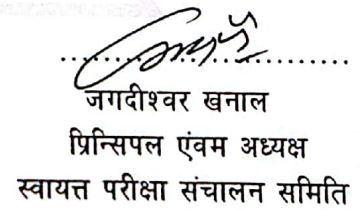 जगदीश्वर खनाल
प्रिन्सिपल एंवम अध्यक्ष
स्वायत्त परीक्षा संचालन समिति